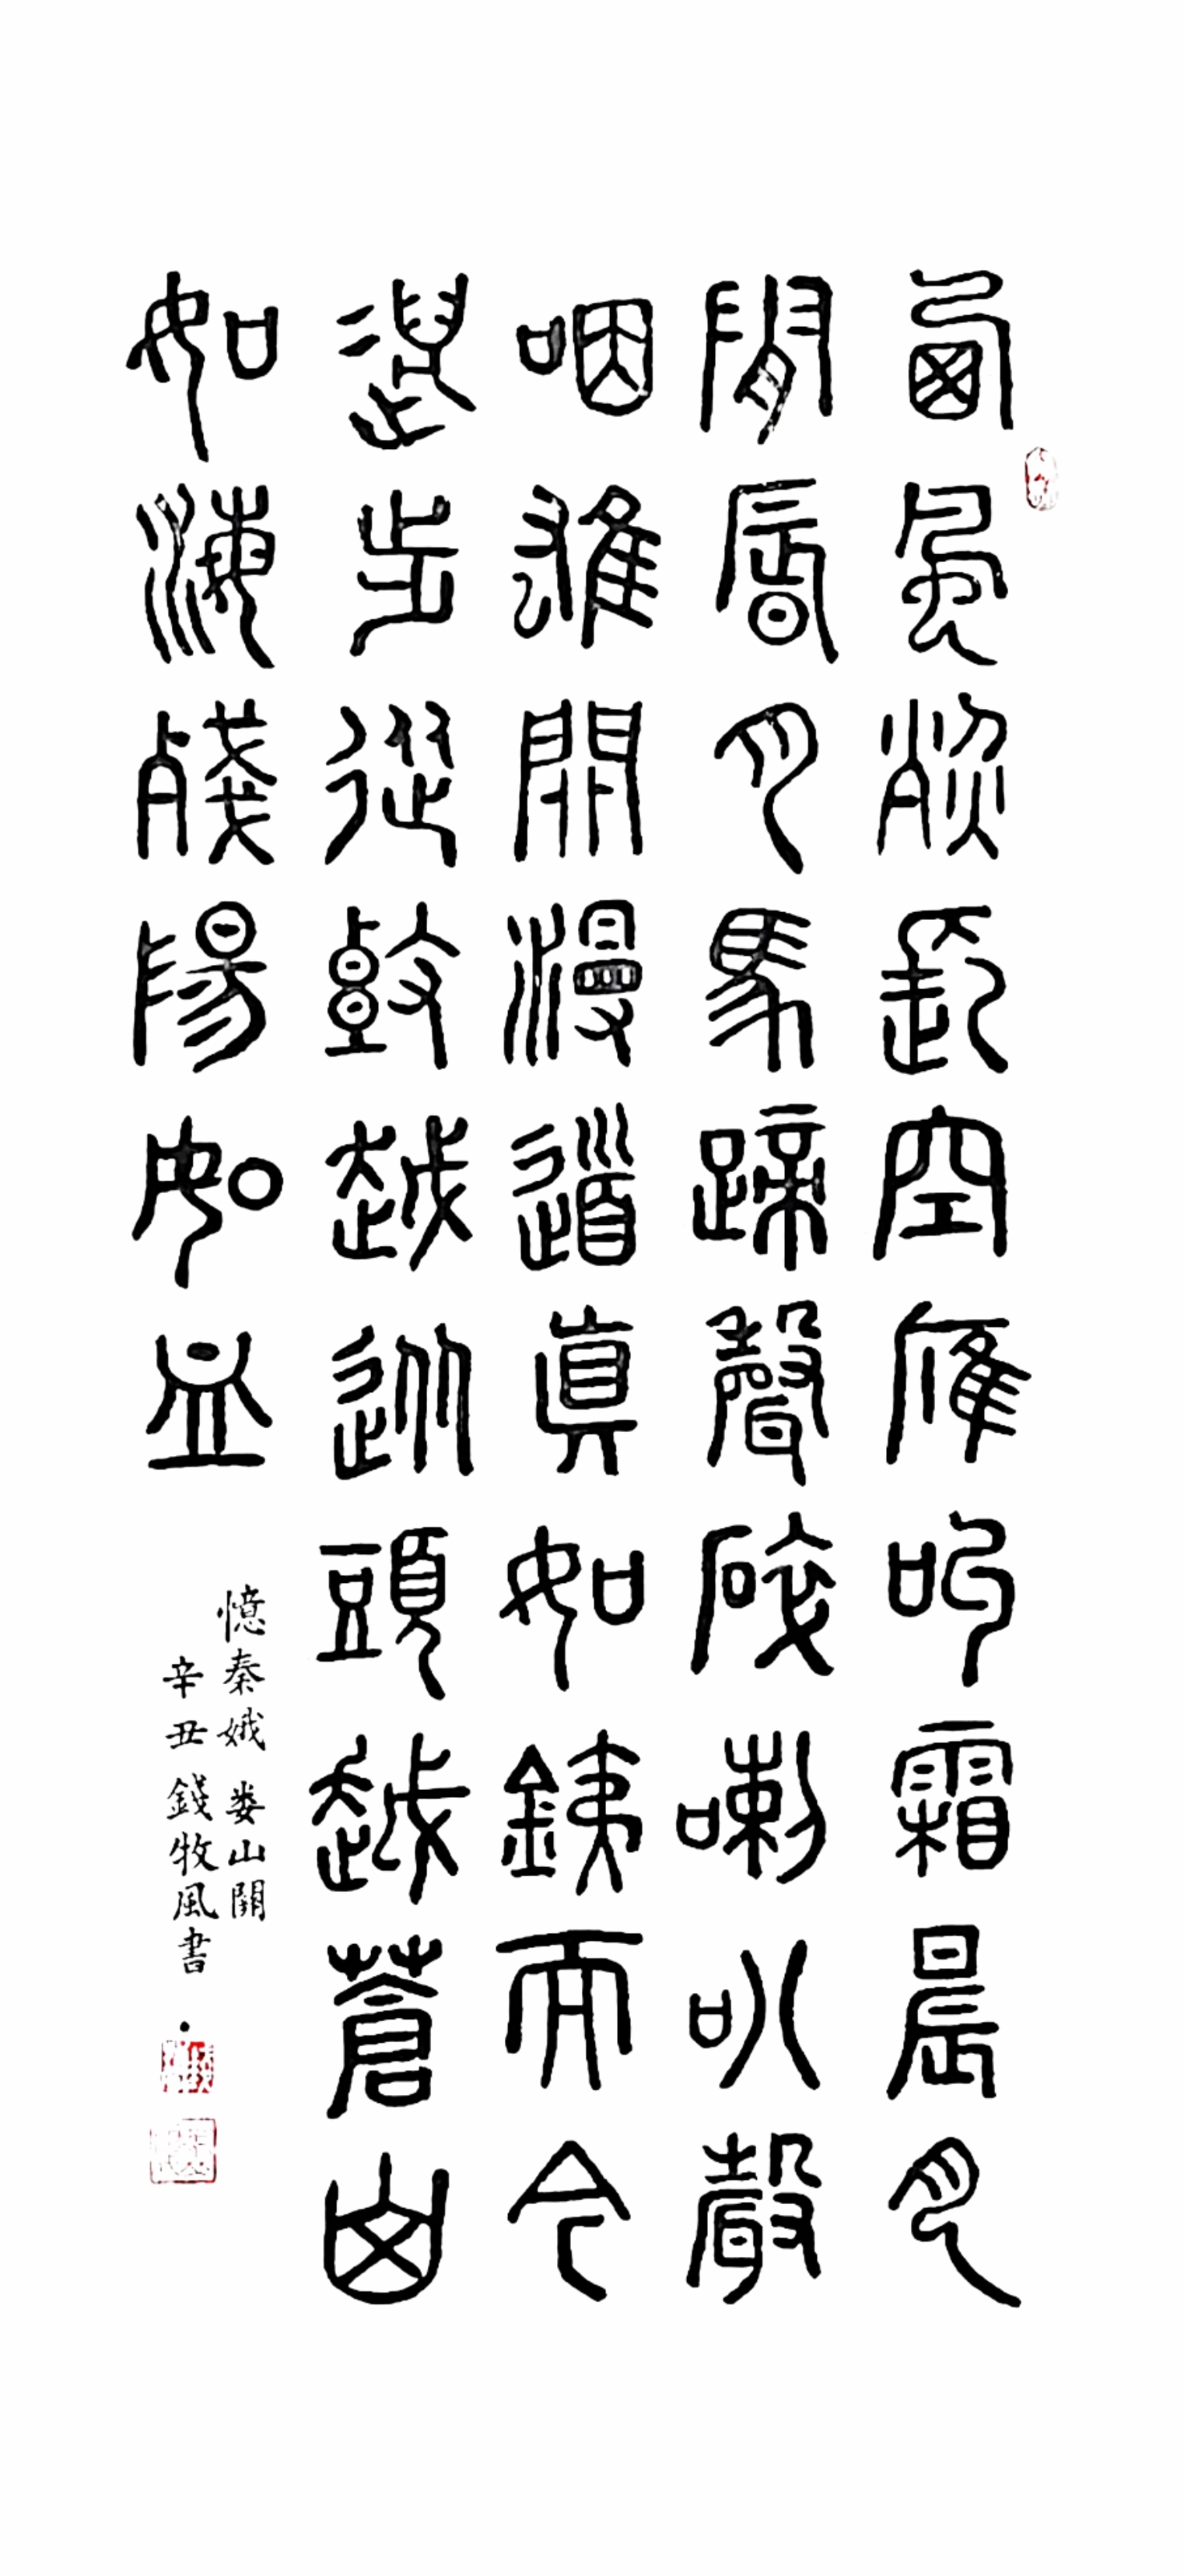 西風烈長空雁叫霜晨月
霜晨月馬蹄聲碎喇叭聲
咽雄關漫道真如鐵而今
邁步從頭越從頭越蒼山
如海殘陽如血
憶秦娥 婁山關
辛丑 錢牧風書